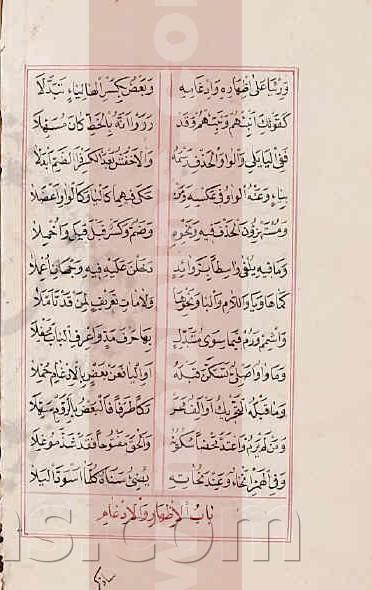 وَرِئْيًا عَلَى إِظْهَارِهِ وَادِّغَامِهِ وَبَعْضٌ بِكَسْرِ الْهَا لِيَاءٍ تَبَدَّلَا
كَقَوْلِكَ أَنْبِئْهُمْ وَنَبِّئْهُمْ وَقَدْ رَوَوْا أَنَّهُ بِالْخَطِّ كَانَ مُسَهِّلَا
فَفِي الْيَا يَلِي وَالْوَاوِ وَالْحَذْفِ رَسْمَهُ وَالَاخْفَشُ بَعْدَ الْكَسْرِ ذَا الضَّمِّ أَبْدَلَا
بِيَاءٍ وَعَنْهُ الْوَاوُ فِي عَكْسِهِ وَمَنْ حَكَى فِيهِمَا كَالْيَا وَكَالْوَاوِ أَعْضَلَا
وَمُسْتَهْزِءُونَ الْحَذْفُ فِيهِ وَنَحْوِهِ وَضَمٌّ وَكَسْرٌ قَبْلُ قِيلَ وَأُخْمِلَا
وَمَا فِيهِ يُلْفَى وَاسِطًا بِزَوَائِدٍ دَخَلْنَ عَلَيْهِ فِيهِ وَجْهَانِ أُعْمِلَا
كَمَا هَا وَيَا وَاللَّامِ وَالْبَا وَنَحْوِهَا وَلَامَاتِ تَعْرِيفٍ لِمَنْ قَدْ تَأَمَّلَا
وَأَشْمِمْ وَرُمْ فِيمَا سِوَى مُتَبَدِّلٍ بِهَا حَرْفَ مَدٍّ وَاعْرِفِ الْبَابَ مَحْفِلَا
وَمَا وَاوٌ اصْلِيٌّ تَسَكَّنَ قَبْلَهُ أَوِ الْيَا فَعَنْ بَعْضٍ بِالِادْغَامِ حُمِّلَا
وَمَا قَبْلَهُ التَّحْرِيكُ أَوْ أَلِفٌ مُحَرْ رَكًا طَرَفًا فَالْبَعْضُ بِالرَّوْمِ سَهَّلَا
وَمَنْ لَمْ يَرُمْ وَاعْتَدَّ مَحْضًا سُكُونَهُ وَأَلْحَقَ مَفْتُوحًا فَقَدْ شَذَّ مُوغِلَا
وَفِي الْهَمْزِ أَنْحَاءٌ وَعِنْدَ نُحَاتِهِ يُضِيءُ سَنَاهُ كُلَّمَا اسْوَدَّ أَلْيَلَا
بَابُ الْإِظْهَارِ وَالْإِدْغَامِ